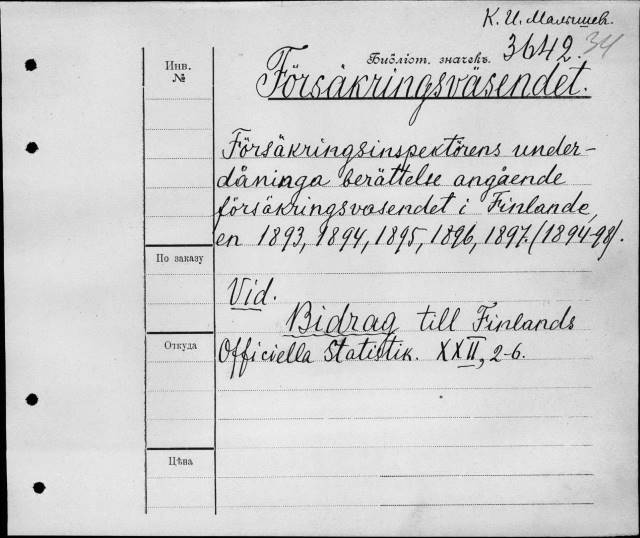 К. И. Малышев.
Инв.
№
Библіот. значекъ.
3642.
34
Försäkringsväsendet.
Försäkringsinspektörens under-
dåninga berättelse angående
försäkringsvasendet i Finlande,
en 1893, 1894, 1895, 1896, 1897. (1894-98).
По заказу
Vid.
Bidrag till Finlands
Откуда
Officiella Statistik. XXII, 2-6.
Цѣна